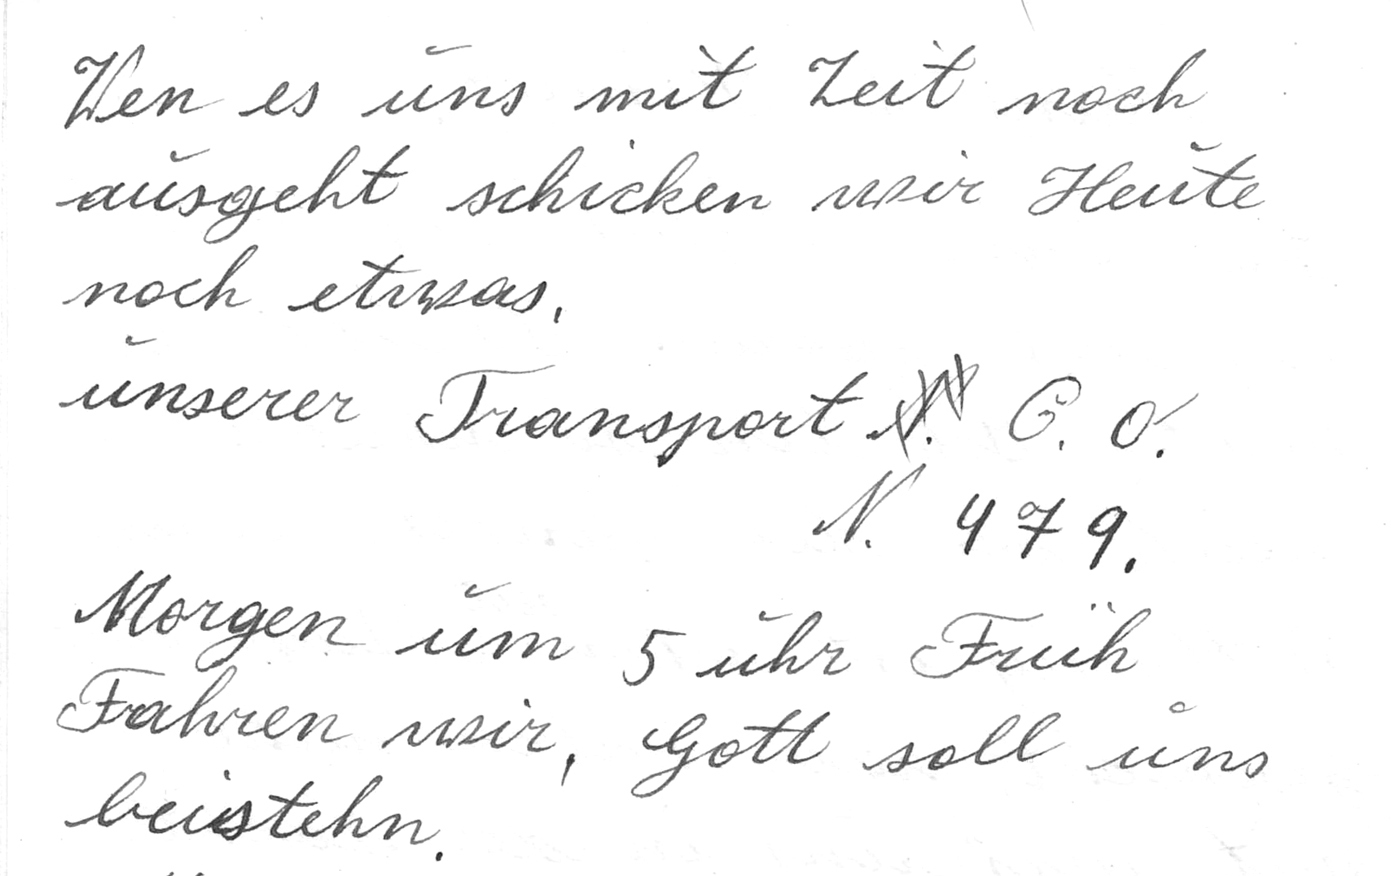 Wen es uns mit Zeit noch
ausgeht schicken wir Heute
noch etwas,
unserer Transport C. O.
N. 479.
Morgen um 5 uhr Früh
Fahren wir, Gott soll uns
beistehn.